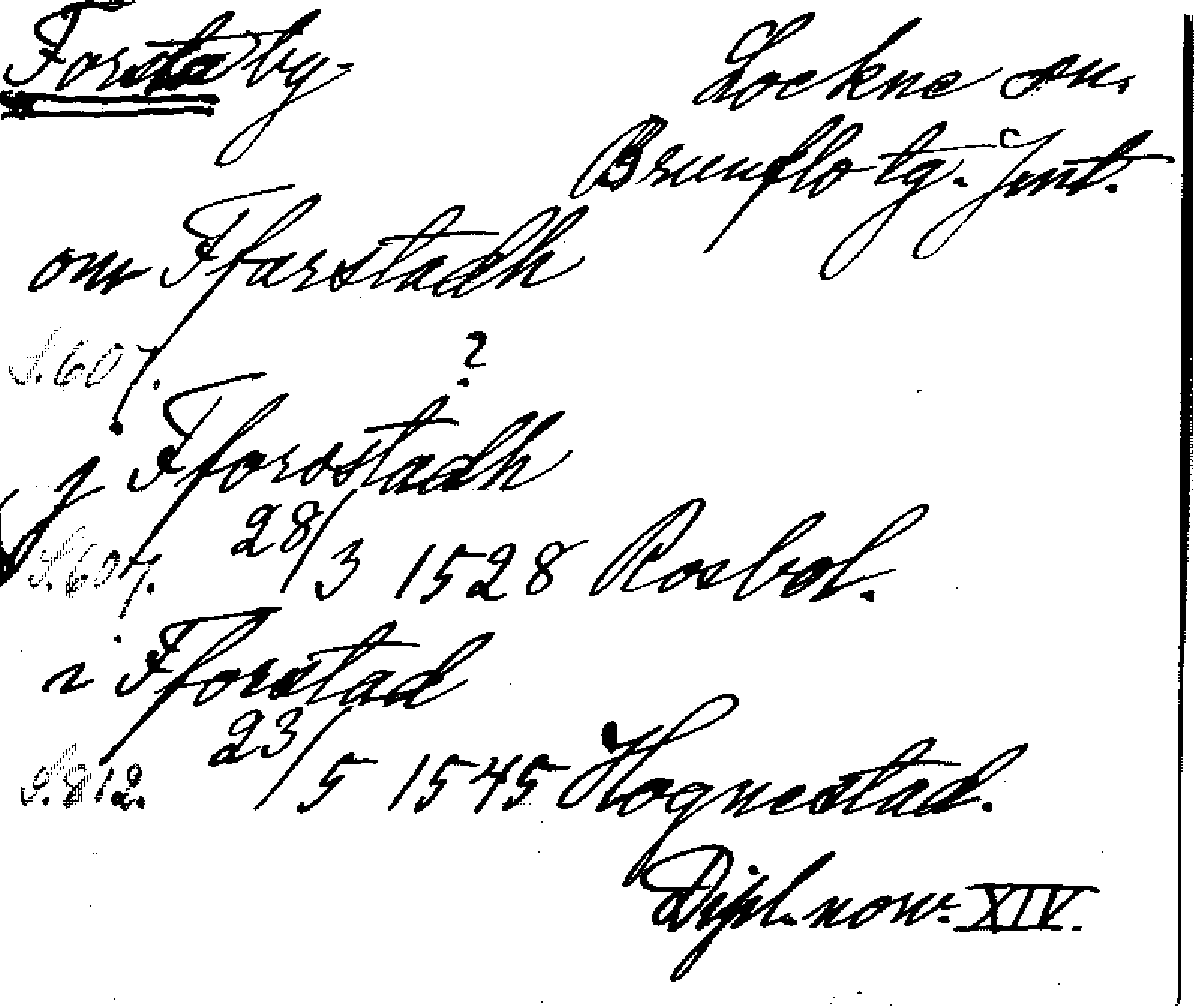 Forsta by.
Lockne sn.
Brunflo tg. Jmt.
om Ffarstadh
S. 607. ?
j Fforostadh
S. 607. 28/3 1528 Rosbol.
i Fforstad
S. 812. 23/5 1545 Hognestad.
Dipl. norv. XIV.